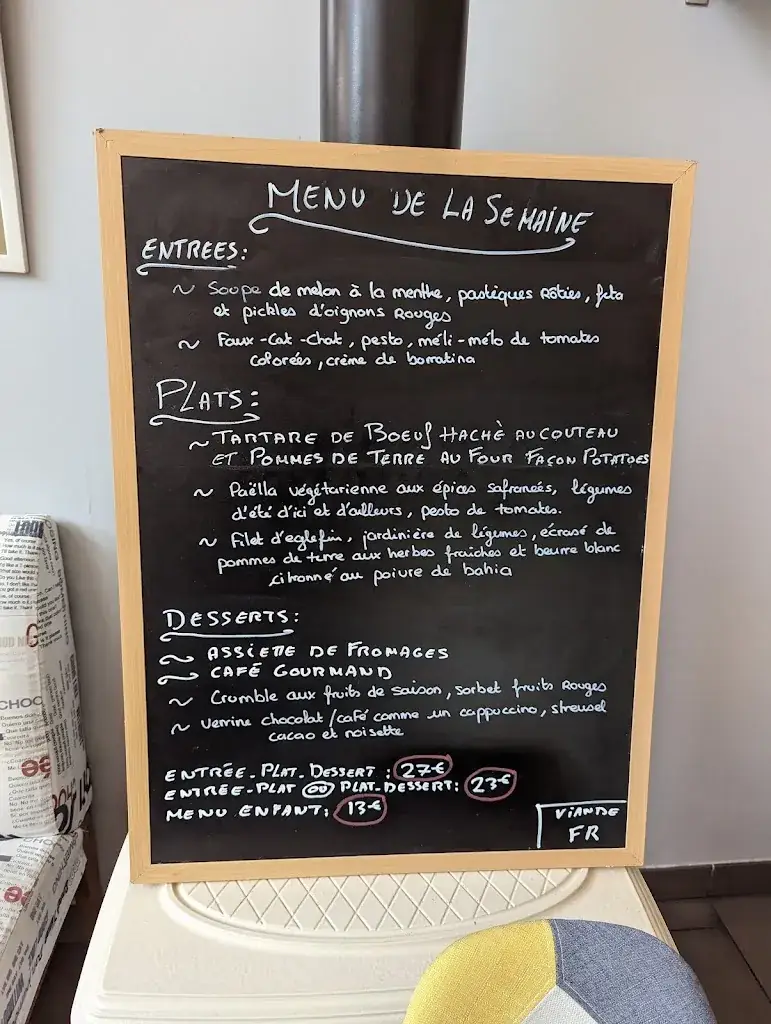 MENU DE LA SEMAINE
ENTREES:
~ Soupe de melon à la menthe, pastèques rôties, feta
et pickles d'oignons Rouges
~ Faux-Cat-Chat, pesto, méli-mélo de tomates
colorées, crème de borratina
PLATS:
~ TARTARE DE BOEUf HACHÈ AU COUTEAU
ET POMMES DE TERRE AU FOUR FAÇON POTATOES
~ Paëlla végétarienne aux épices safranées, légumes
d'été d'ici et d'ailleurs, pesto de tomates.
~ Filet d'eglefin, jardinière de légumes, écrasé de
pommes de terre aux herbes fraiches et beurre blanc
citronné au poivre de bahia
DESSERTS:
~ ASSIETTE DE FROMAGES
~ CAFÉ GOURMAND
~ Crumble aux fruits de saison, sorbet fruits Rouges
~ Verrine chocolat/café comme un cappuccino, streusel
cacao et noisette
ENTRÉE-PLAT-DESSERT : 27€
ENTRÉE-PLAT OU PLAT-DESSERT: 23€
MENU ENFANT: 13€
VIANDE
FR